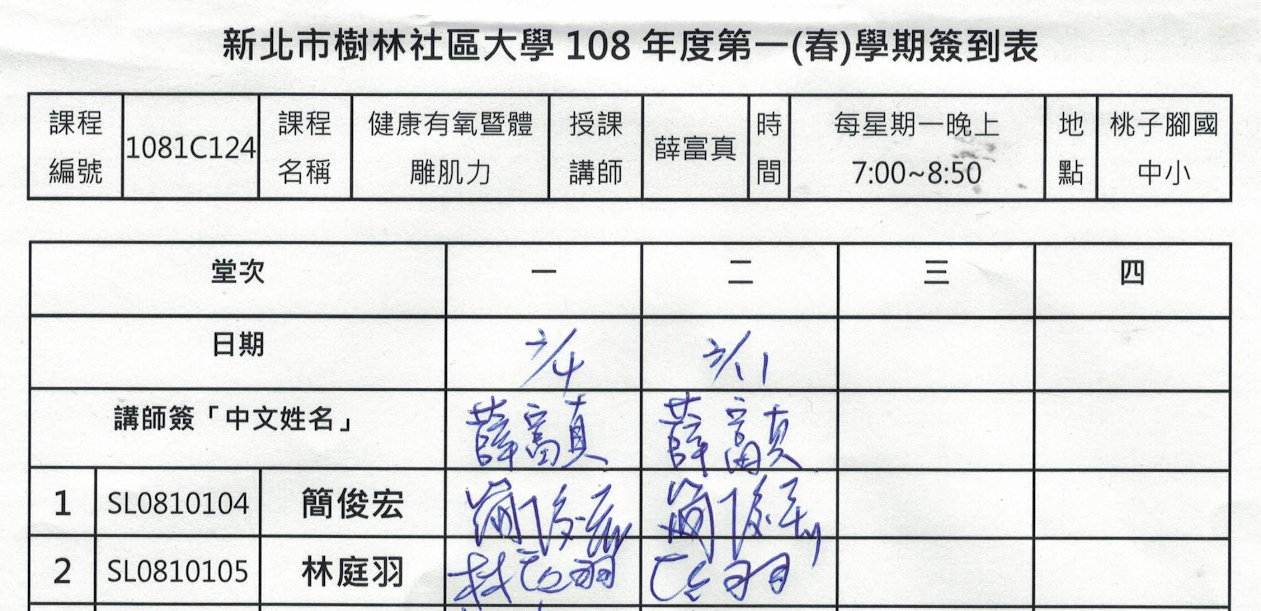 新北市樹林社區大學 108 年度第一(春)學期簽到表
課程編號 1081C124 課程名稱 健康有氧暨體雕肌力 授課講師 薛富真 時間 每星期一晚上 7:00~8:50 地點 桃子腳國中小
堂次 一 二 三 四
日期 3/4 3/11
講師簽「中文姓名」 薛富真 薛富真
1 SL0810104 簡俊宏 簡俊宏 簡俊宏
2 SL0810105 林庭羽 林庭羽 庭羽